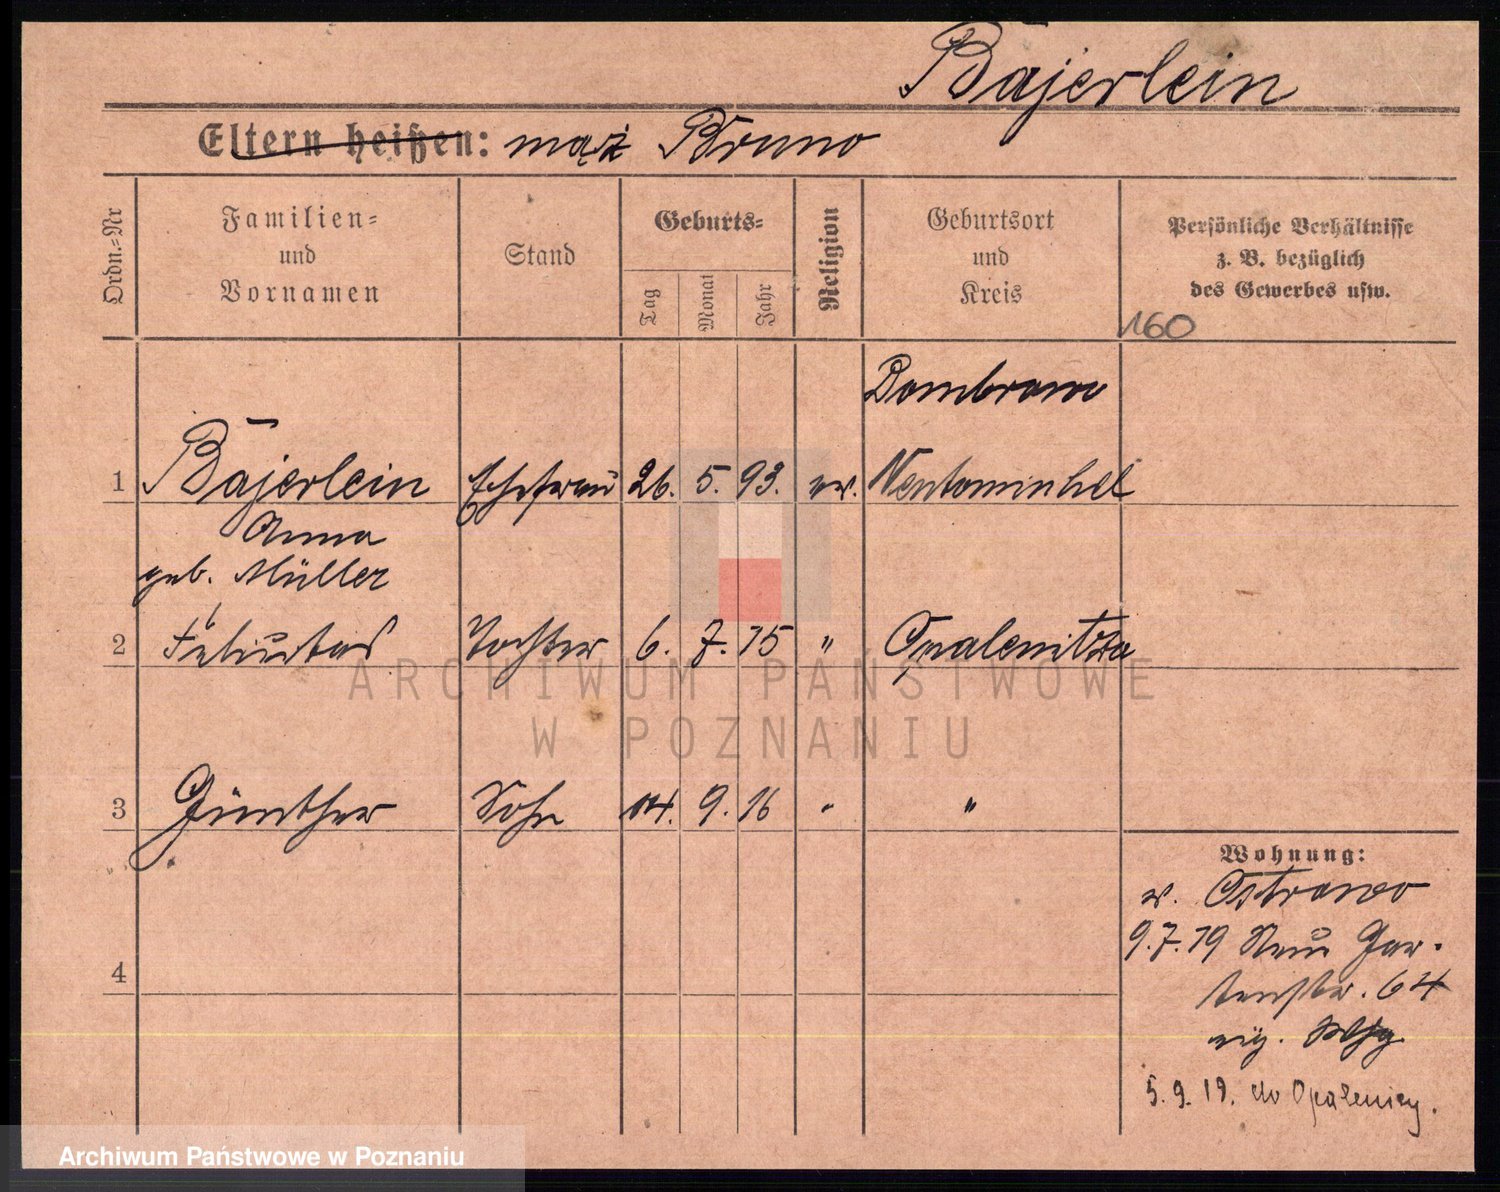 Bajerlein
Eltern heißen: mąż Bruno
Ordn.-Nr
Familien-
und
Vornamen
Stand
Geburts-
Tag
Monat
Jahr
Religion
Geburtsort
und
Kreis
Persönliche Verhältnisse
z. B. bezüglich
des Gewerbes usw.
160
Dombrowo
1 Bajerlein Ehefrau 26. 5. 93. ev. Neutomischel
Anna
geb. Müller
2 Felicitas Tochter 6. 7. 15 " Opalenitza
3 Günther Sohn 14. 9. 16 " "
4
Wohnung:
v. Ostrowo
9.7.19 Neue Gar-
tenstr. 64
eig. Whg
5.9.19. do Opalenicy.
ARCHIWUM PAŃSTWOWE
W POZNANIU
Archiwum Państwowe w Poznaniu